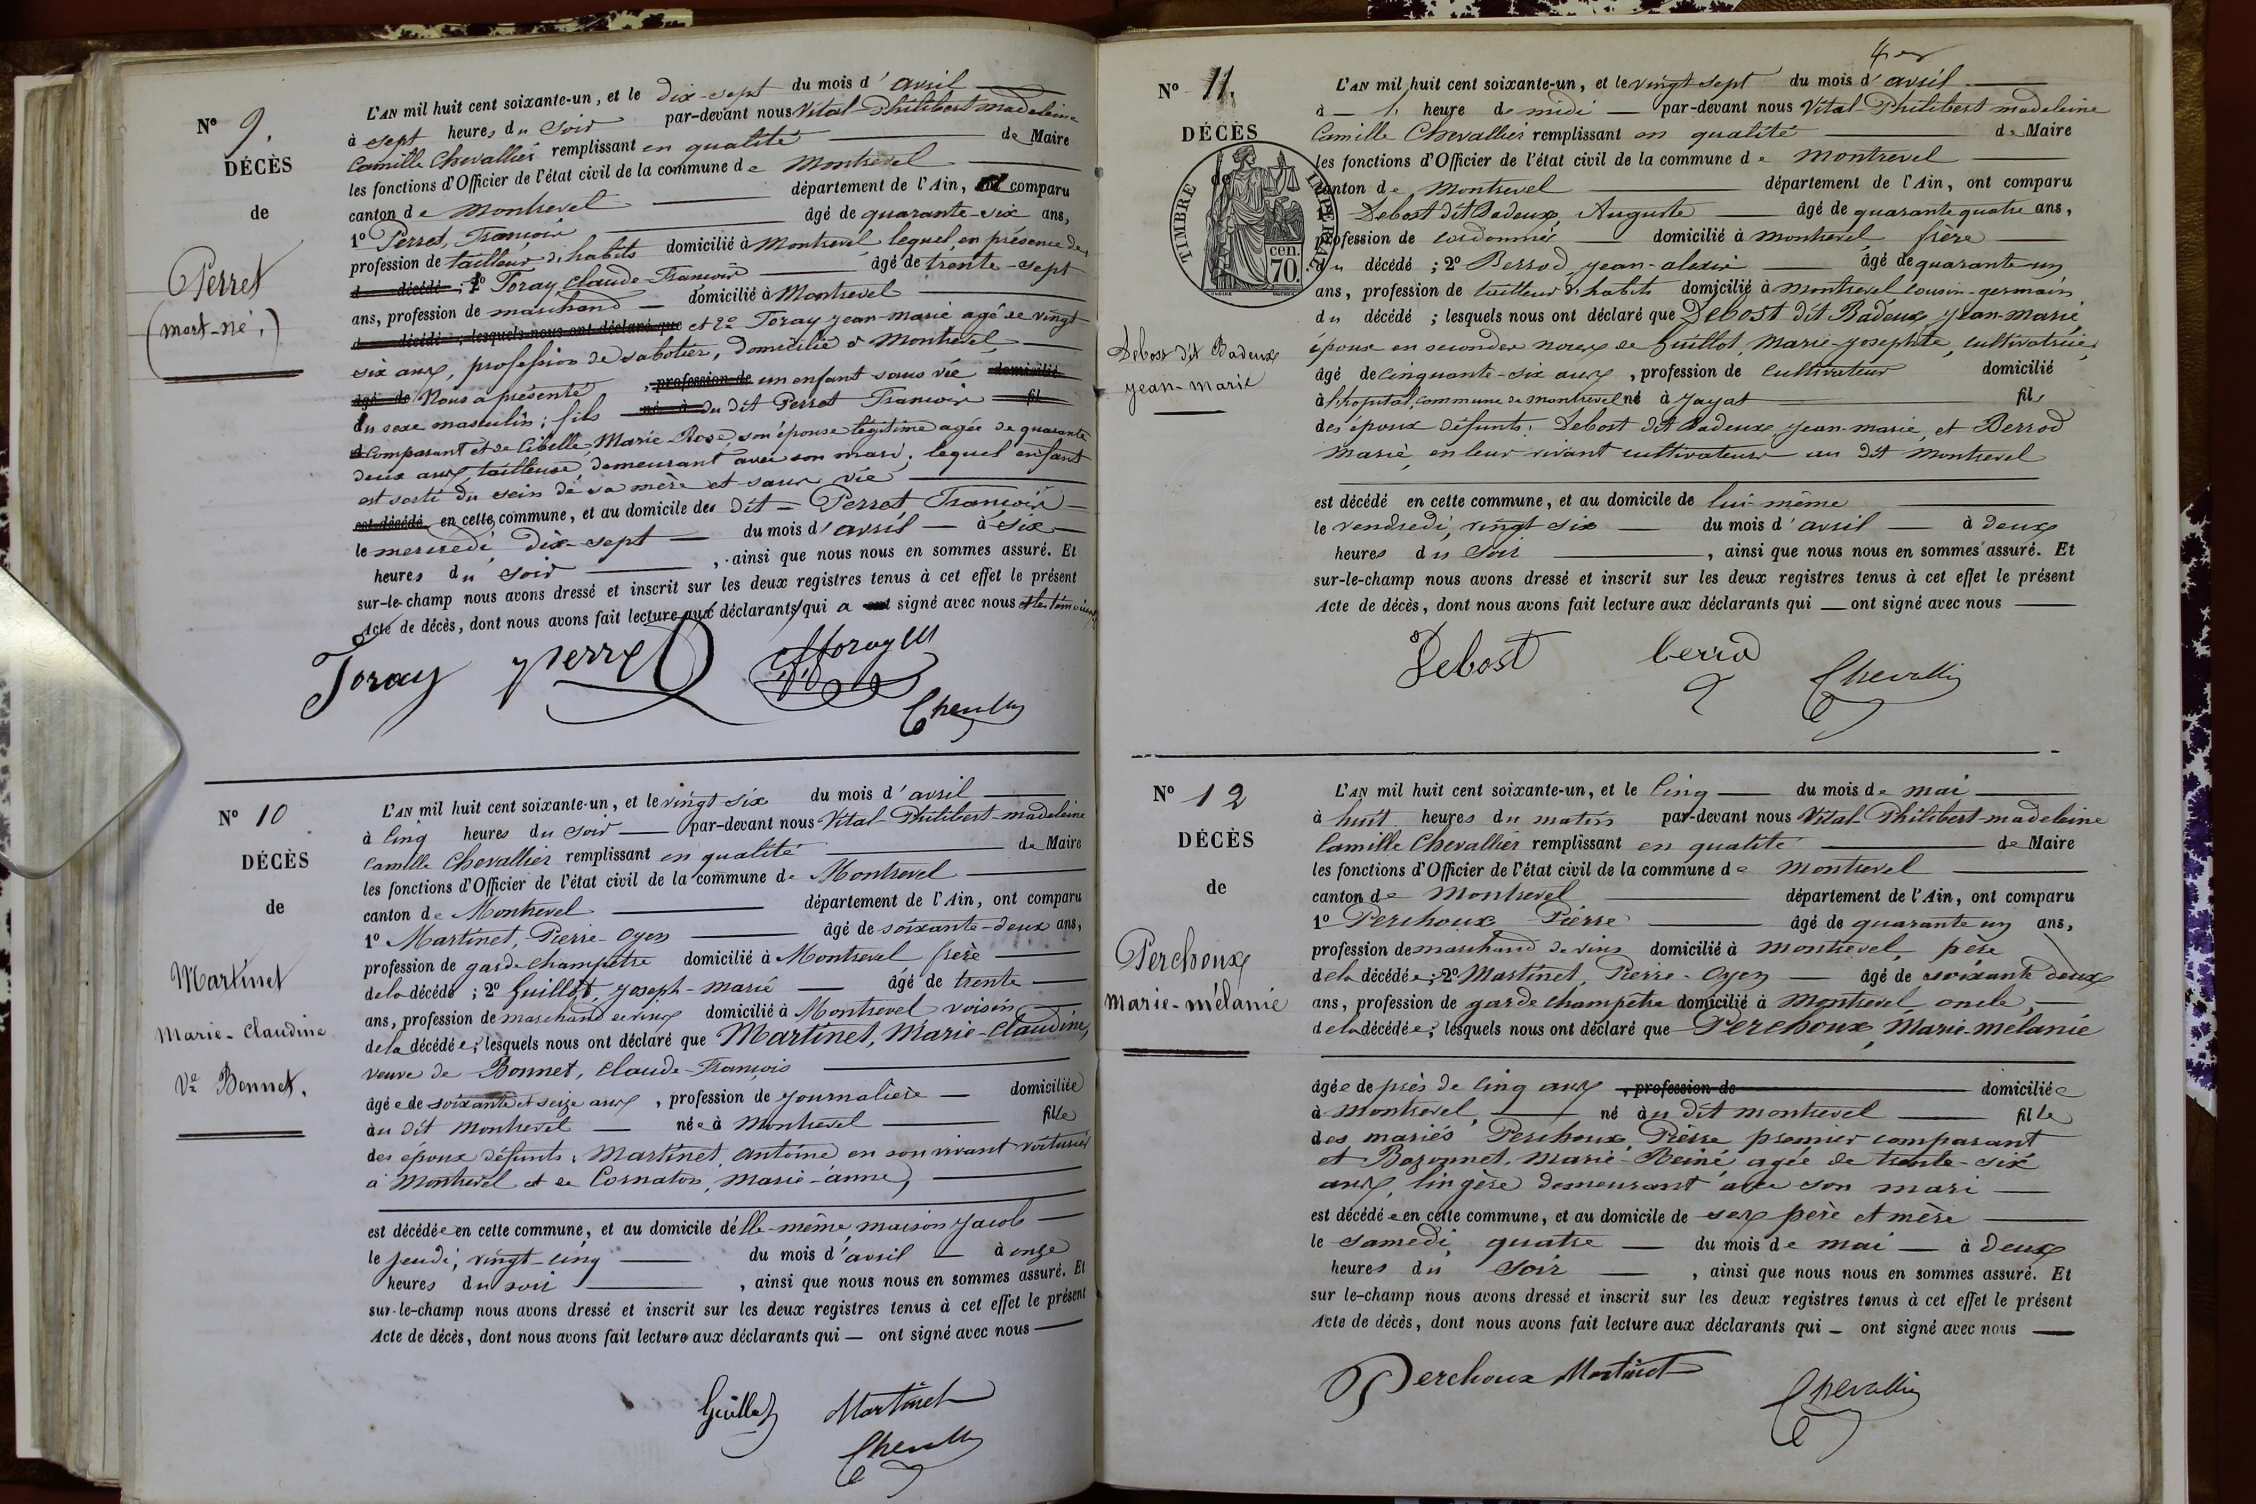 Nº 9.
DÉCÈS
de
Perret
(mort-né.)
L'AN mil huit cent soixante-un, et le dix-sept du mois d'avril
à sept heures du soir par-devant nous Vital-Philibert madeleine
Camille Chevallier remplissant en qualité de Maire
les fonctions d'Officier de l'état civil de la commune de Montrevel
canton de Montrevel département de l'Ain, comparu
1º Perret, François âgé de quarante-six ans,
profession de tailleur d'habits domicilié à Montrevel lequel, en présence de
décédé ; 1º Foray Claude-François âgé de trente-sept
ans, profession de marchand domicilié à Montrevel
décédé ; lesquels nous ont déclaré que et 2º Foray Jean-marie agé de vingt
six ans, profession de sabotier, domicilié à Montrevel
âgé de Nous a présenté , profession de un enfant sans vie domicilié
du sexe masculin ; fils né à du dit Perret François fil
Comparant et de Cibelle, Marie-Rose, son épouse légitime agée de quarante
deux ans, tailleuse, demeurant avec son mari ; lequel enfant
est sorti du sein de sa mère et sans vie
est décédé en cette commune, et au domicile des dit Perret François
le mercredi dix-sept du mois d'avril à six
heures du soir , ainsi que nous nous en sommes assuré. Et
sur-le-champ nous avons dressé et inscrit sur les deux registres tenus à cet effet le présent
Acte de décès, dont nous avons fait lecture aux déclarants qui a ont signé avec nous et les témoins
Foray perret Foray
Chevallier
Nº 10
DÉCÈS
de
Martinet
Marie-Claudine
Ve Bonnet.
L'AN mil huit cent soixante-un, et le vingt six du mois d'avril
à Cinq heures du soir par-devant nous Vital-Philibert-madeleine
Camille Chevallier remplissant en qualité de Maire
les fonctions d'Officier de l'état civil de la commune de Montrevel
canton de Montrevel département de l'Ain, ont comparu
1º Martinet, Pierre-Oyen âgé de soixante-deux ans,
profession de garde champêtre domicilié à Montrevel frère
de la décédé ; 2º Guillot, Joseph-marie âgé de trente
ans, profession de marchand de vins domicilié à Montrevel voisin
de la décédée ; lesquels nous ont déclaré que Martinet, Marie-Claudine,
veuve de Bonnet, Claude-François
âgée de soixante et seize ans , profession de journalière domiciliée
à au dit Montrevel née à Montrevel fille
des époux défunts, Martinet, Antoine en son vivant voiturier
à Montrevel et de Cornaton, Marie-Anne,
est décédée en cette commune, et au domicile d'elle-même, maison Jacob
le jeudi, vingt-cinq du mois d'avril à onze
heures du soir , ainsi que nous nous en sommes assuré. Et
sur-le-champ nous avons dressé et inscrit sur les deux registres tenus à cet effet le présent
Acte de décès, dont nous avons fait lecture aux déclarants qui ont signé avec nous
Guillot Martinet
Chevallier
Nº 11.
DÉCÈS
de
TIMBRE IMPÉRIAL
70 cen.
Debost dit Badeux
Jean-marie
L'AN mil huit cent soixante-un, et le vingt sept du mois d'avril
à heure de midi par-devant nous Vital-Philibert madeleine
Camille Chevallier remplissant en qualité de Maire
les fonctions d'Officier de l'état civil de la commune de Montrevel
canton de Montrevel département de l'Ain, ont comparu
Debost dit Badeux, Auguste âgé de quarante quatre ans,
profession de cordonnier domicilié à Montrevel, frère
du décédé ; 2º Berrod, Jean-alexis âgé de quarante un
ans, profession de tailleur d'habits domicilié à Montrevel cousin-germain
du décédé ; lesquels nous ont déclaré que Debost dit Badeux, Jean-Marie,
époux en secondes noces de Guillot, Marie-Josephte, cultivatrice,
âgé de cinquante-six ans , profession de Cultivateur domicilié
à l'hopital, commune de Montrevel né à Jayat fils
des époux défunts : Debost dit Badeux, Jean-marie, et Berrod
Marie, en leur vivant cultivateurs au dit Montrevel
est décédé en cette commune, et au domicile de lui-même
le vendredi, vingt six du mois d'avril à deux
heures du soir , ainsi que nous nous en sommes assuré. Et
sur-le-champ nous avons dressé et inscrit sur les deux registres tenus à cet effet le présent
Acte de décès, dont nous avons fait lecture aux déclarants qui ont signé avec nous
Debost berrod Chevallier
Nº 12
DÉCÈS
de
Perchoux
Marie-mélanie
L'AN mil huit cent soixante-un, et le Cinq du mois de mai
à huit heures du matin par-devant nous Vital-Philibert-madeleine
Camille Chevallier remplissant en qualité de Maire
les fonctions d'Officier de l'état civil de la commune de Montrevel
canton de Montrevel département de l'Ain, ont comparu
1º Perchoux Pierre âgé de quarante un ans,
profession de marchand de vins domicilié à Montrevel, père
de la décédée ; 2º Martinet, Pierre-Oyen âgé de soixante deux
ans, profession de garde champêtre domicilié à Montrevel, oncle,
de la décédée ; lesquels nous ont déclaré que Perchoux, Marie-mélanie
âgée de près de cinq ans , profession de domiciliée
à Montrevel, né à au dit Montrevel fille
des mariés Perchoux, Pierre premier comparant
et Bozonnet, Marie-Reine agée de trente-six
ans, lingère demeurant avec son mari
est décédée en cette commune, et au domicile de ses père et mère
le samedi, quatre du mois de mai à deux
heures du soir , ainsi que nous nous en sommes assuré. Et
sur le-champ nous avons dressé et inscrit sur les deux registres tenus à cet effet le présent
Acte de décès, dont nous avons fait lecture aux déclarants qui ont signé avec nous
Perchoux Martinet Chevallier